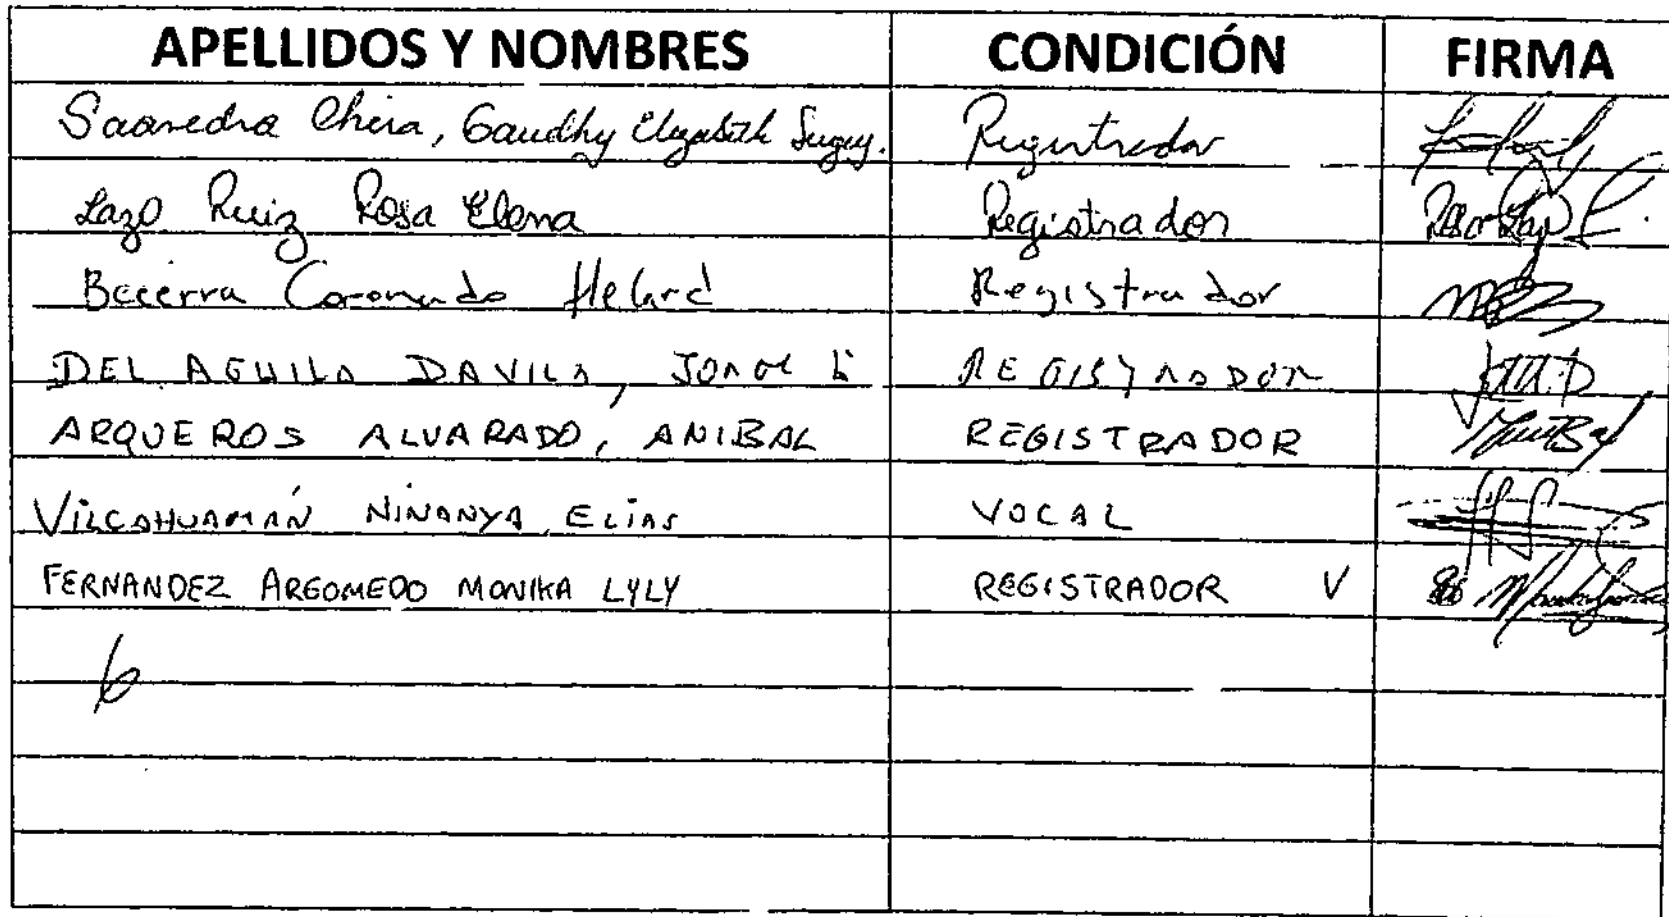 APELLIDOS Y NOMBRES CONDICIÓN FIRMA
Saavedra Chira, Gaudhy Elizabeth Sugey. Registrador
Lazo Ruiz Rosa Elena Registrador
Becerra Coronado Helard Registrador
DEL AGUILA DAVILA, JORGE L REGISTRADOR
ARQUEROS ALVARADO, ANIBAL REGISTRADOR
VILCAHUAMÁN NINANYA, ELIAS VOCAL
FERNANDEZ ARGOMEDO MONIKA LYLY REGISTRADOR V
6